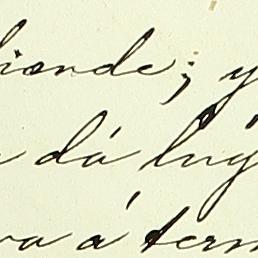 hiende; y
dá lug
va á term